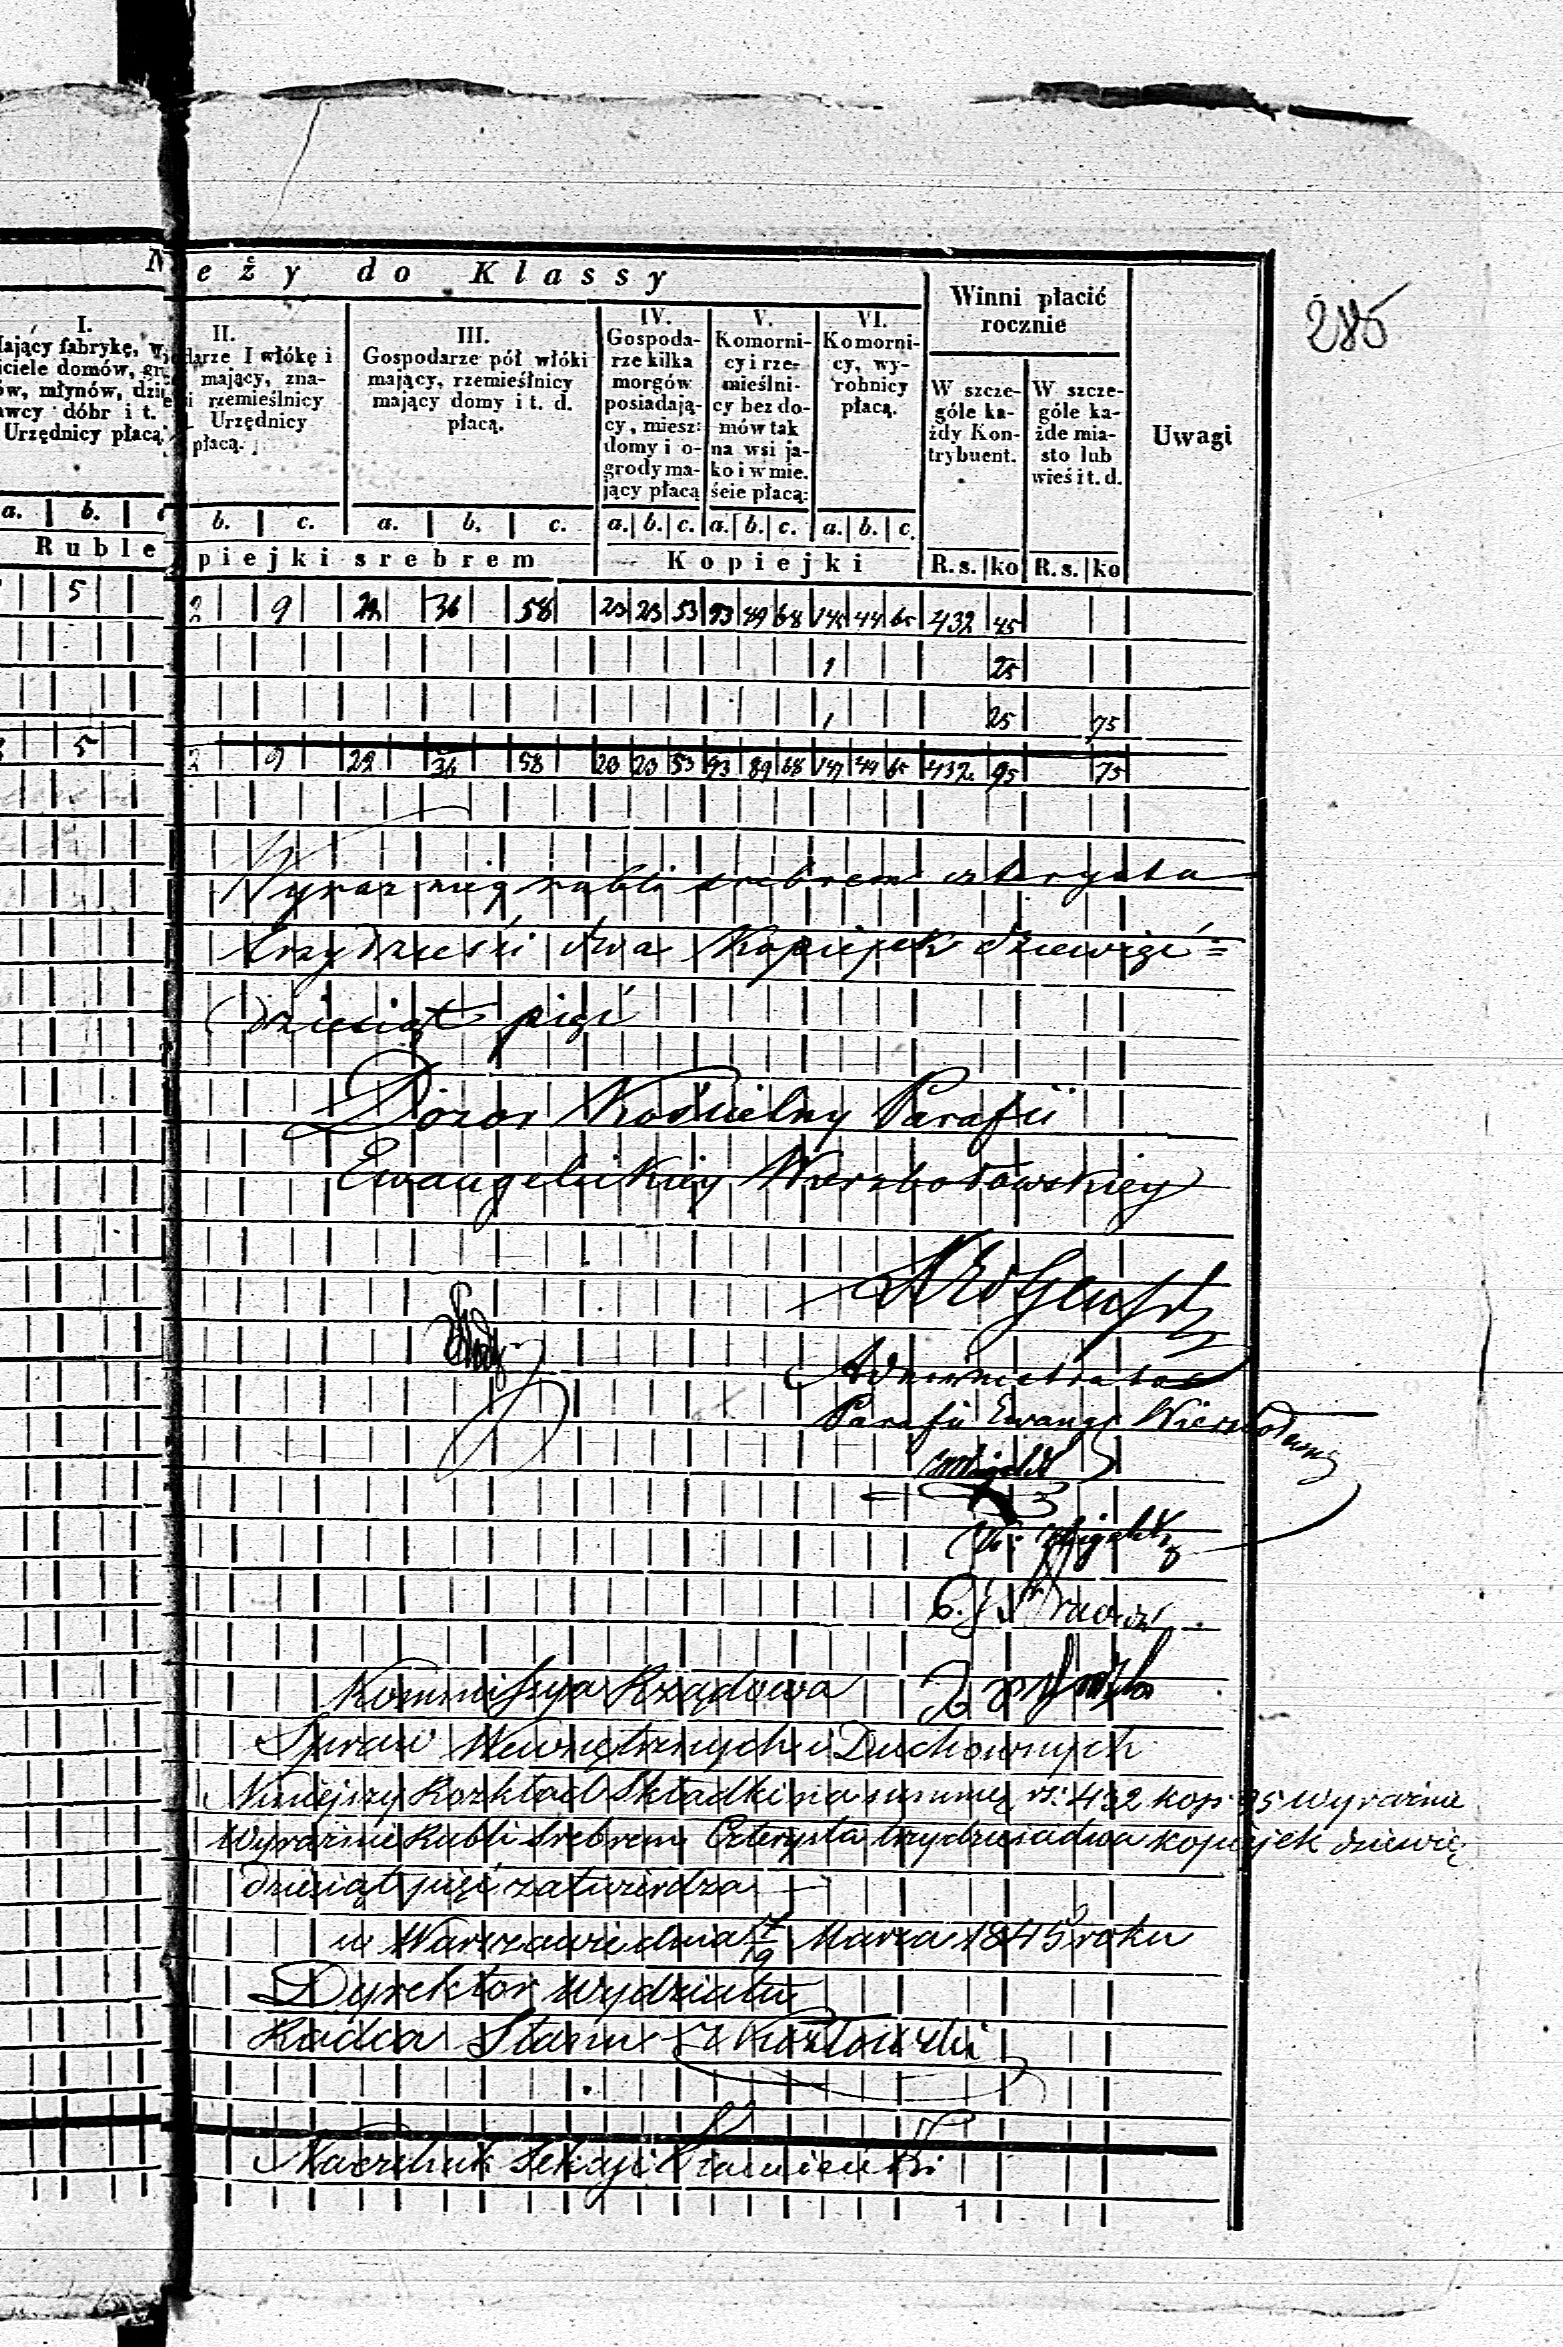 285
eży do Klassy
Winni płacić
rocznie
Uwagi
I.
ający fabrykę,
ciele domów,
ów, młynów,
awcy dóbr i t.
Urzędnicy płacą
II.
darze I włókę i
mający, zna-
rzemieślnicy
Urzędnicy
płacą.
III.
Gospodarze pół włóki
mający, rzemieślnicy
mający domy i t. d.
płacą.
IV.
Gospoda-
rze kilka
morgów
posiadają-
cy, miesz:
domy i o-
grody ma-
jący płacą
V.
Komorni-
cy i rze-
mieślni-
cy bez do-
mów tak
na wsi ja-
ko i w mie.
ście płacą:
VI.
Komorni-
cy, wy-
robnicy
płacą.
W szcze-
góle ka-
żdy Kon-
trybuent.
W szcze-
góle ka-
żde mia-
sto lub
wieś i t. d.
a. b. b. c. a. b. c. a. b. c. a. b. c. a. b. c.
Ruble piejki srebrem Kopiejki R.s. ko R.s. ko
5 2 9 22 36 58 23 23 53 93 89 68 145 44 65 432 45
1 25
1 25 75
5 2 9 22 36 58 23 23 53 93 89 68 147 44 65 432 95 75
Wyraznię rubli srebrem czterysta
trzydzieści dwa Kopiejek dziewięć=
dziesiąt pięć
Dozor Kościelny Parafii
Ewangelickiey Wierzbołowskiey
Administrator
Parafii Ewang:
Kommissya Rządowa
Spraw Wewnętrznych i Duchownych
Niniejszy Rozkład Składki na summę rs: 432 kop: 95 wyraźnie
Wyraźnie Rubli Srebrem Czterysta trzydzieści dwa kopiejek dziewię
dziesiąt pięć zatwierdza
w Warszawie dnia 7/19 Marca 1845 roku
Dyrektor Wydziału
Radca Stanu Kozłowski
Naczelnik Sekcyi